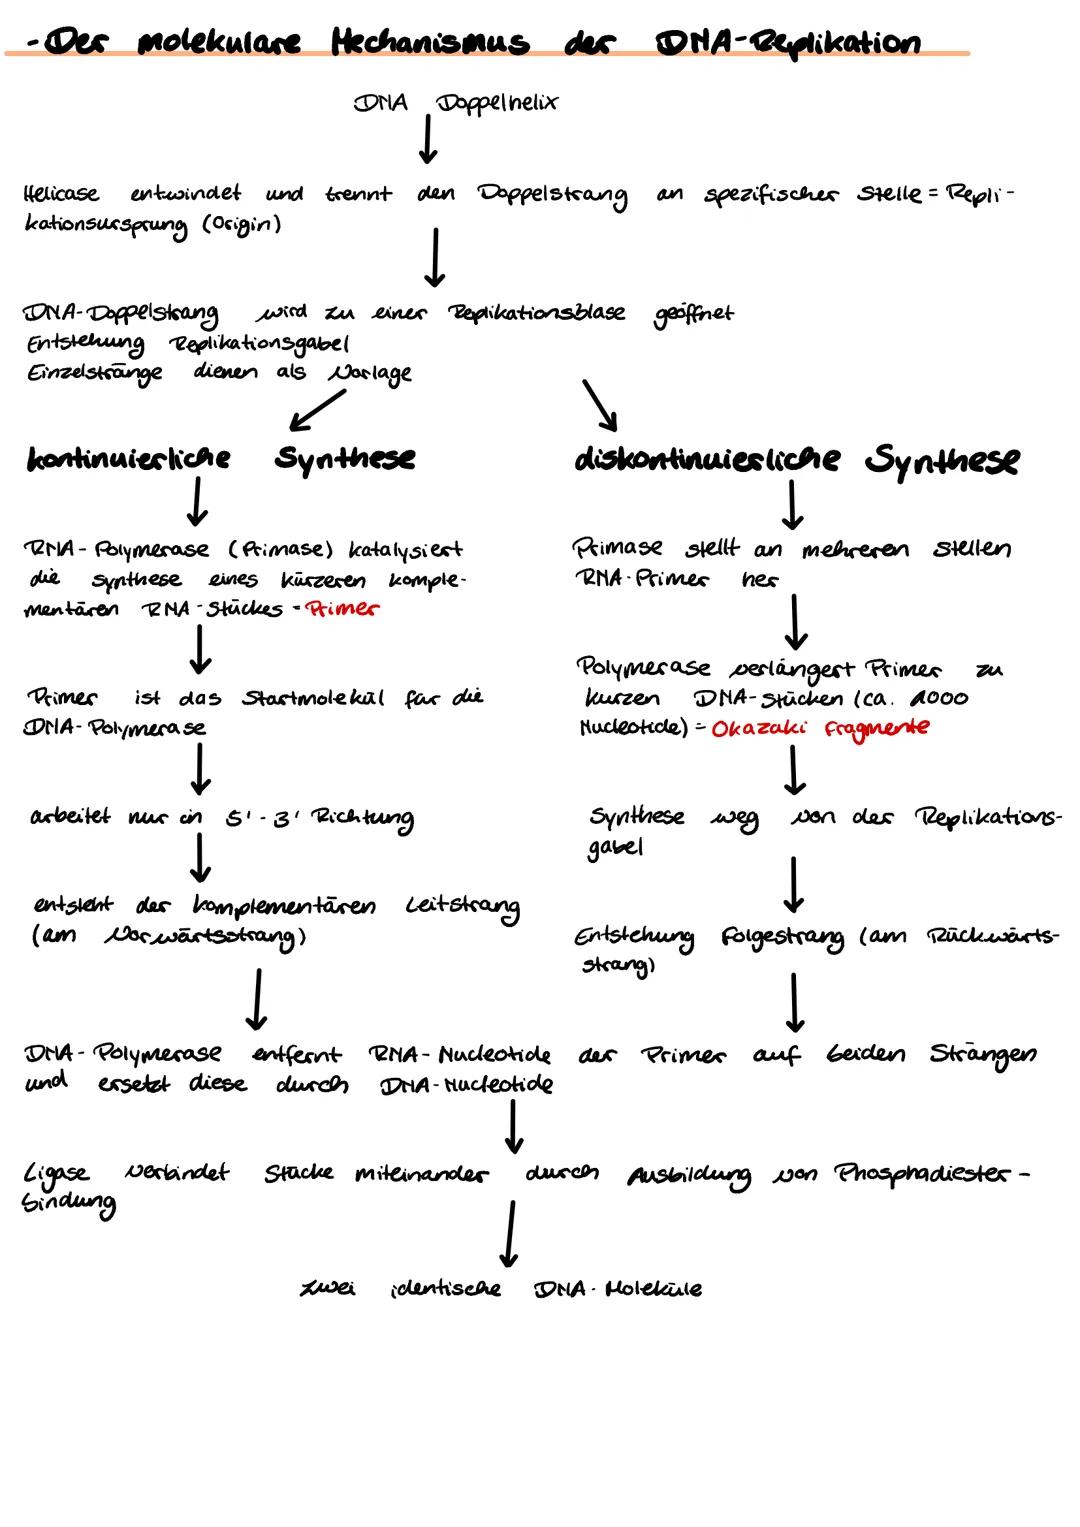 - Der molekulare Mechanismus der DNA-Replikation
DNA Doppelhelix
Helicase entwindet und trennt den Doppelstrang an spezifischer Stelle = Repli-
kationsursprung (Origin)
DNA-Doppelstrang wird zu einer Replikationsblase geöffnet
Entstehung Replikationsgabel
Einzelstränge dienen als Vorlage
kontinuierliche Synthese
RNA-Polymerase (Primase) katalysiert
die synthese eines kürzeren komple-
mentären RNA-Stückes = Primer
Primer ist das Startmolekül für die
DNA-Polymerase
arbeitet nur in 5'-3' Richtung
entsteht der komplementären Leitstrang
(am Vorwärtsstrang)
diskontinuierliche Synthese
Primase stellt an mehreren stellen
RNA-Primer her
Polymerase verlängert Primer zu
kurzen DNA-Stücken (ca. 1000
Nucleotide) = Okazaki Fragmente
Synthese weg von der Replikations-
gabel
Entstehung Folgestrang (am Rückwärts-
strang)
DNA-Polymerase entfernt RNA-Nucleotide der Primer auf beiden Strängen
und ersetzt diese durch DNA-Nucleotide
Ligase verbindet Stücke miteinander durch Ausbildung von Phosphodiester-
bindung
zwei identische DNA-Moleküle